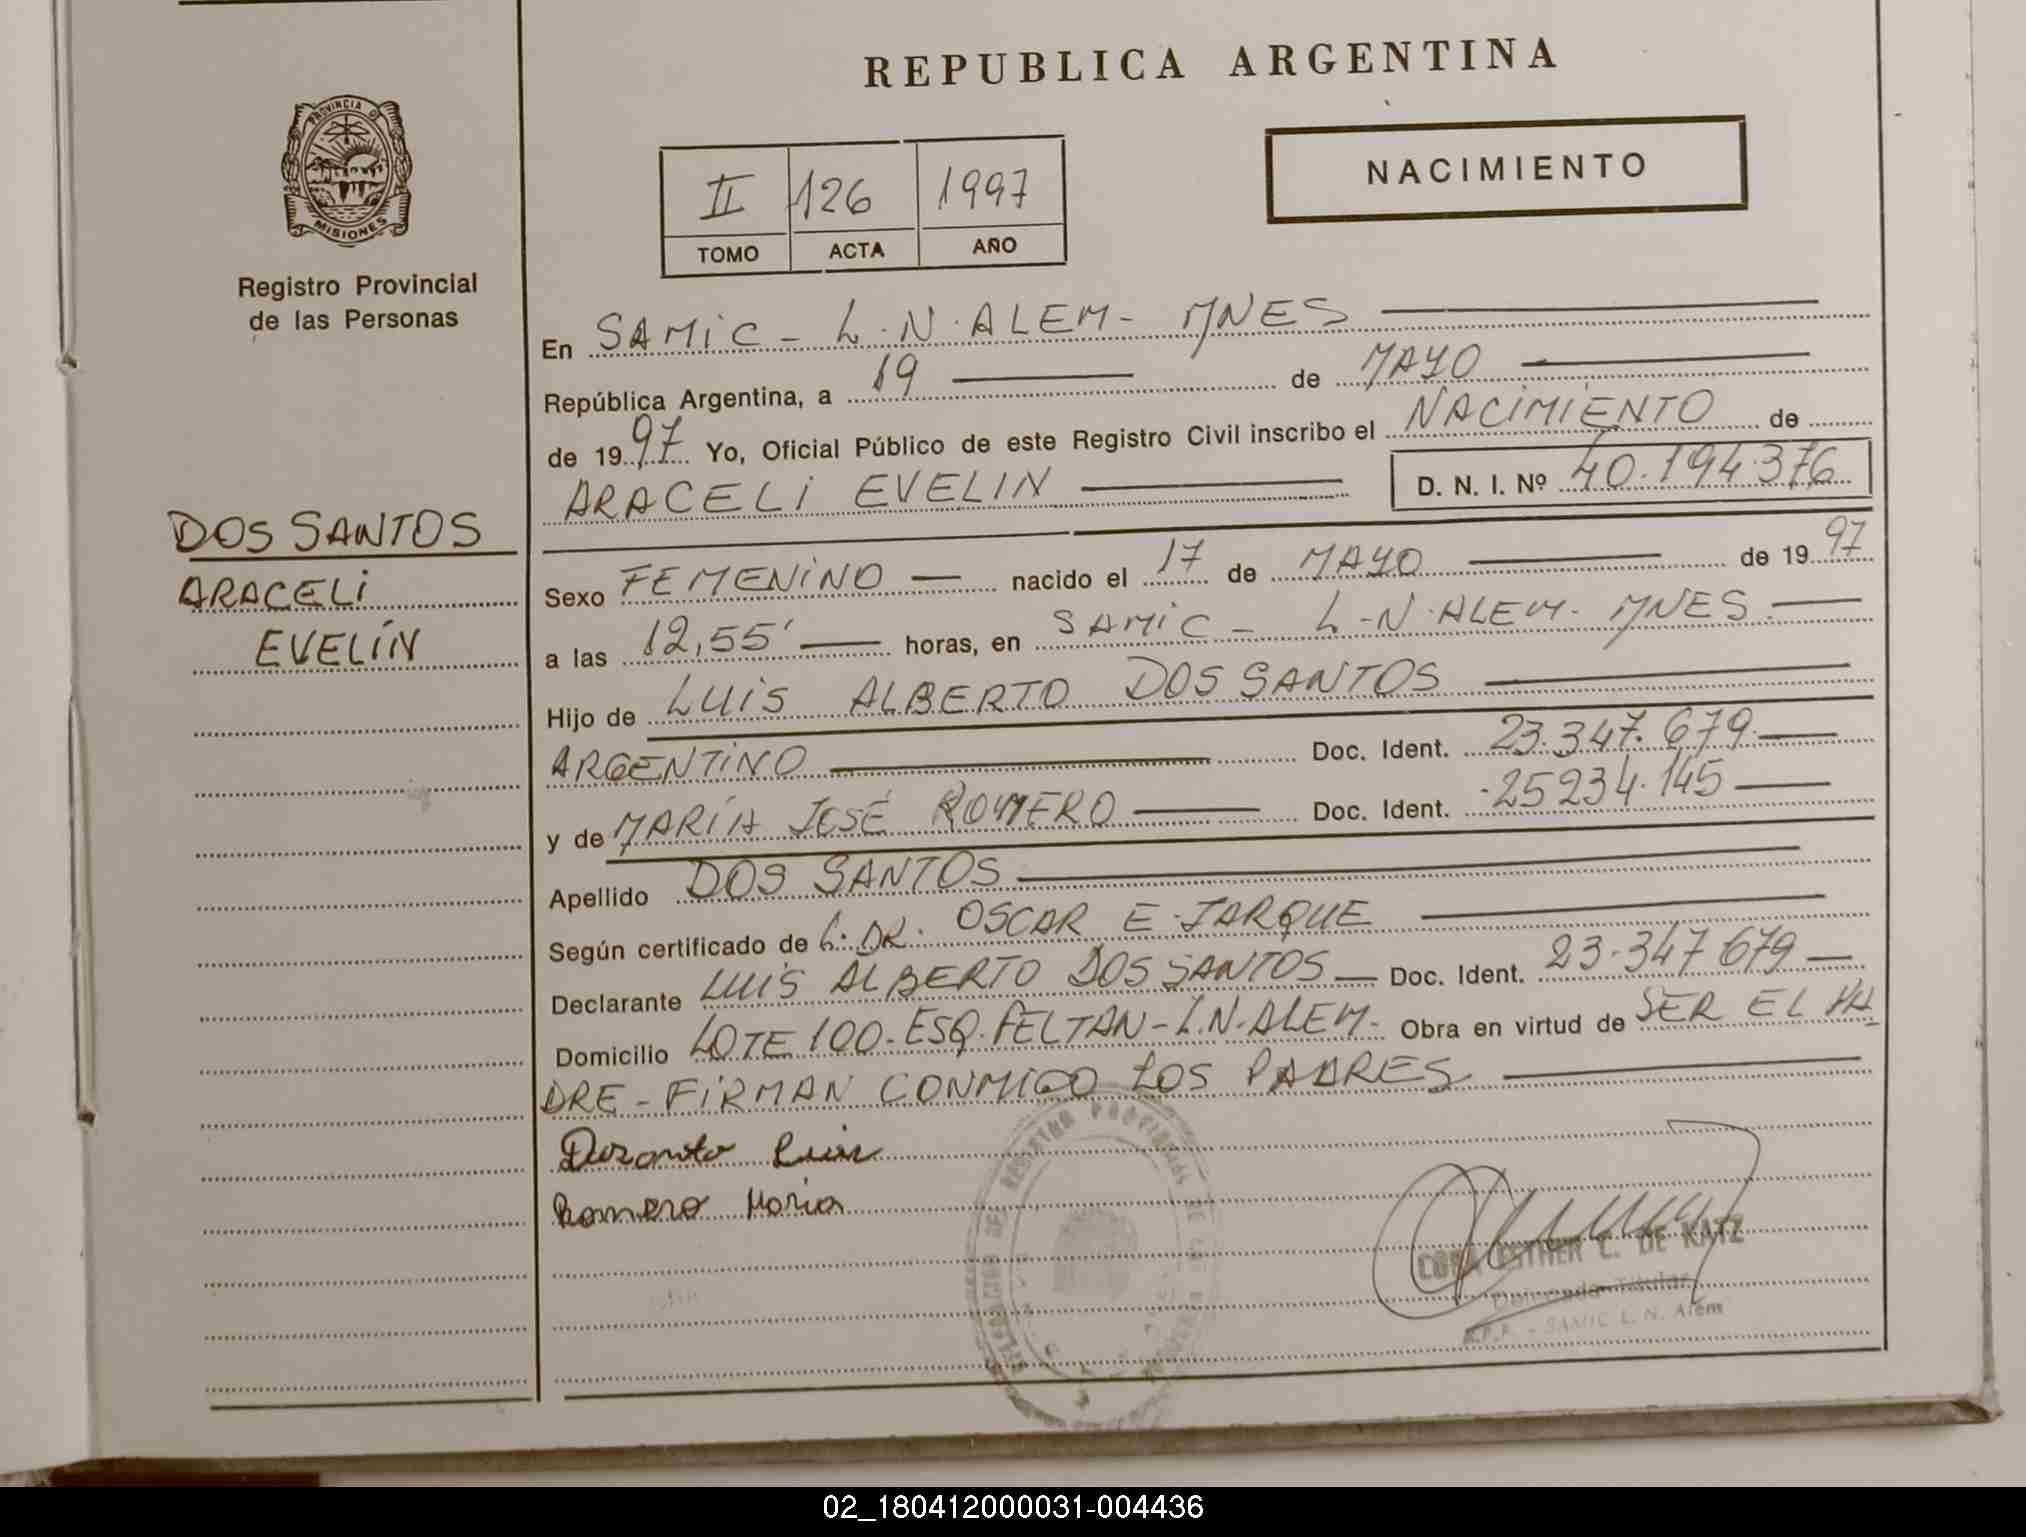 REPUBLICA ARGENTINA
PROVINCIA DE
MISIONES
Registro Provincial
de las Personas
NACIMIENTO
II 126 1997
TOMO ACTA AÑO
En SAMIC - L.N.ALEM- MNES
República Argentina, a 19 de MAYO
de 1997 Yo, Oficial Público de este Registro Civil inscribo el NACIMIENTO de
ARACELI EVELIN D. N. I. Nº 40.194.376
DOS SANTOS
ARACELI
EVELÍN
Sexo FEMENINO nacido el 17 de MAYO de 1997
a las 12,55' horas, en SAMIC - L-N.ALEM- MNES
Hijo de LUIS ALBERTO DOS SANTOS
ARGENTINO Doc. Ident. 23.347.679
y de MARÍA JOSÉ ROMERO Doc. Ident. 25234.145
Apellido DOS SANTOS
Según certificado de DR. OSCAR E. JARQUE
Declarante LUIS ALBERTO DOS SANTOS Doc. Ident. 23.347 679
Domicilio LOTE 100-ESQ.FELTAN-L.N.ALEM- Obra en virtud de SER EL PA
DRE - FIRMAN CONMIGO LOS PADRES
Dosanto Luis
Romero Maria
CORA ESTHER C. DE KATZ
Delegada Titular
R.P.P. - SAMIC L. N. Alem
02_180412000031-004436